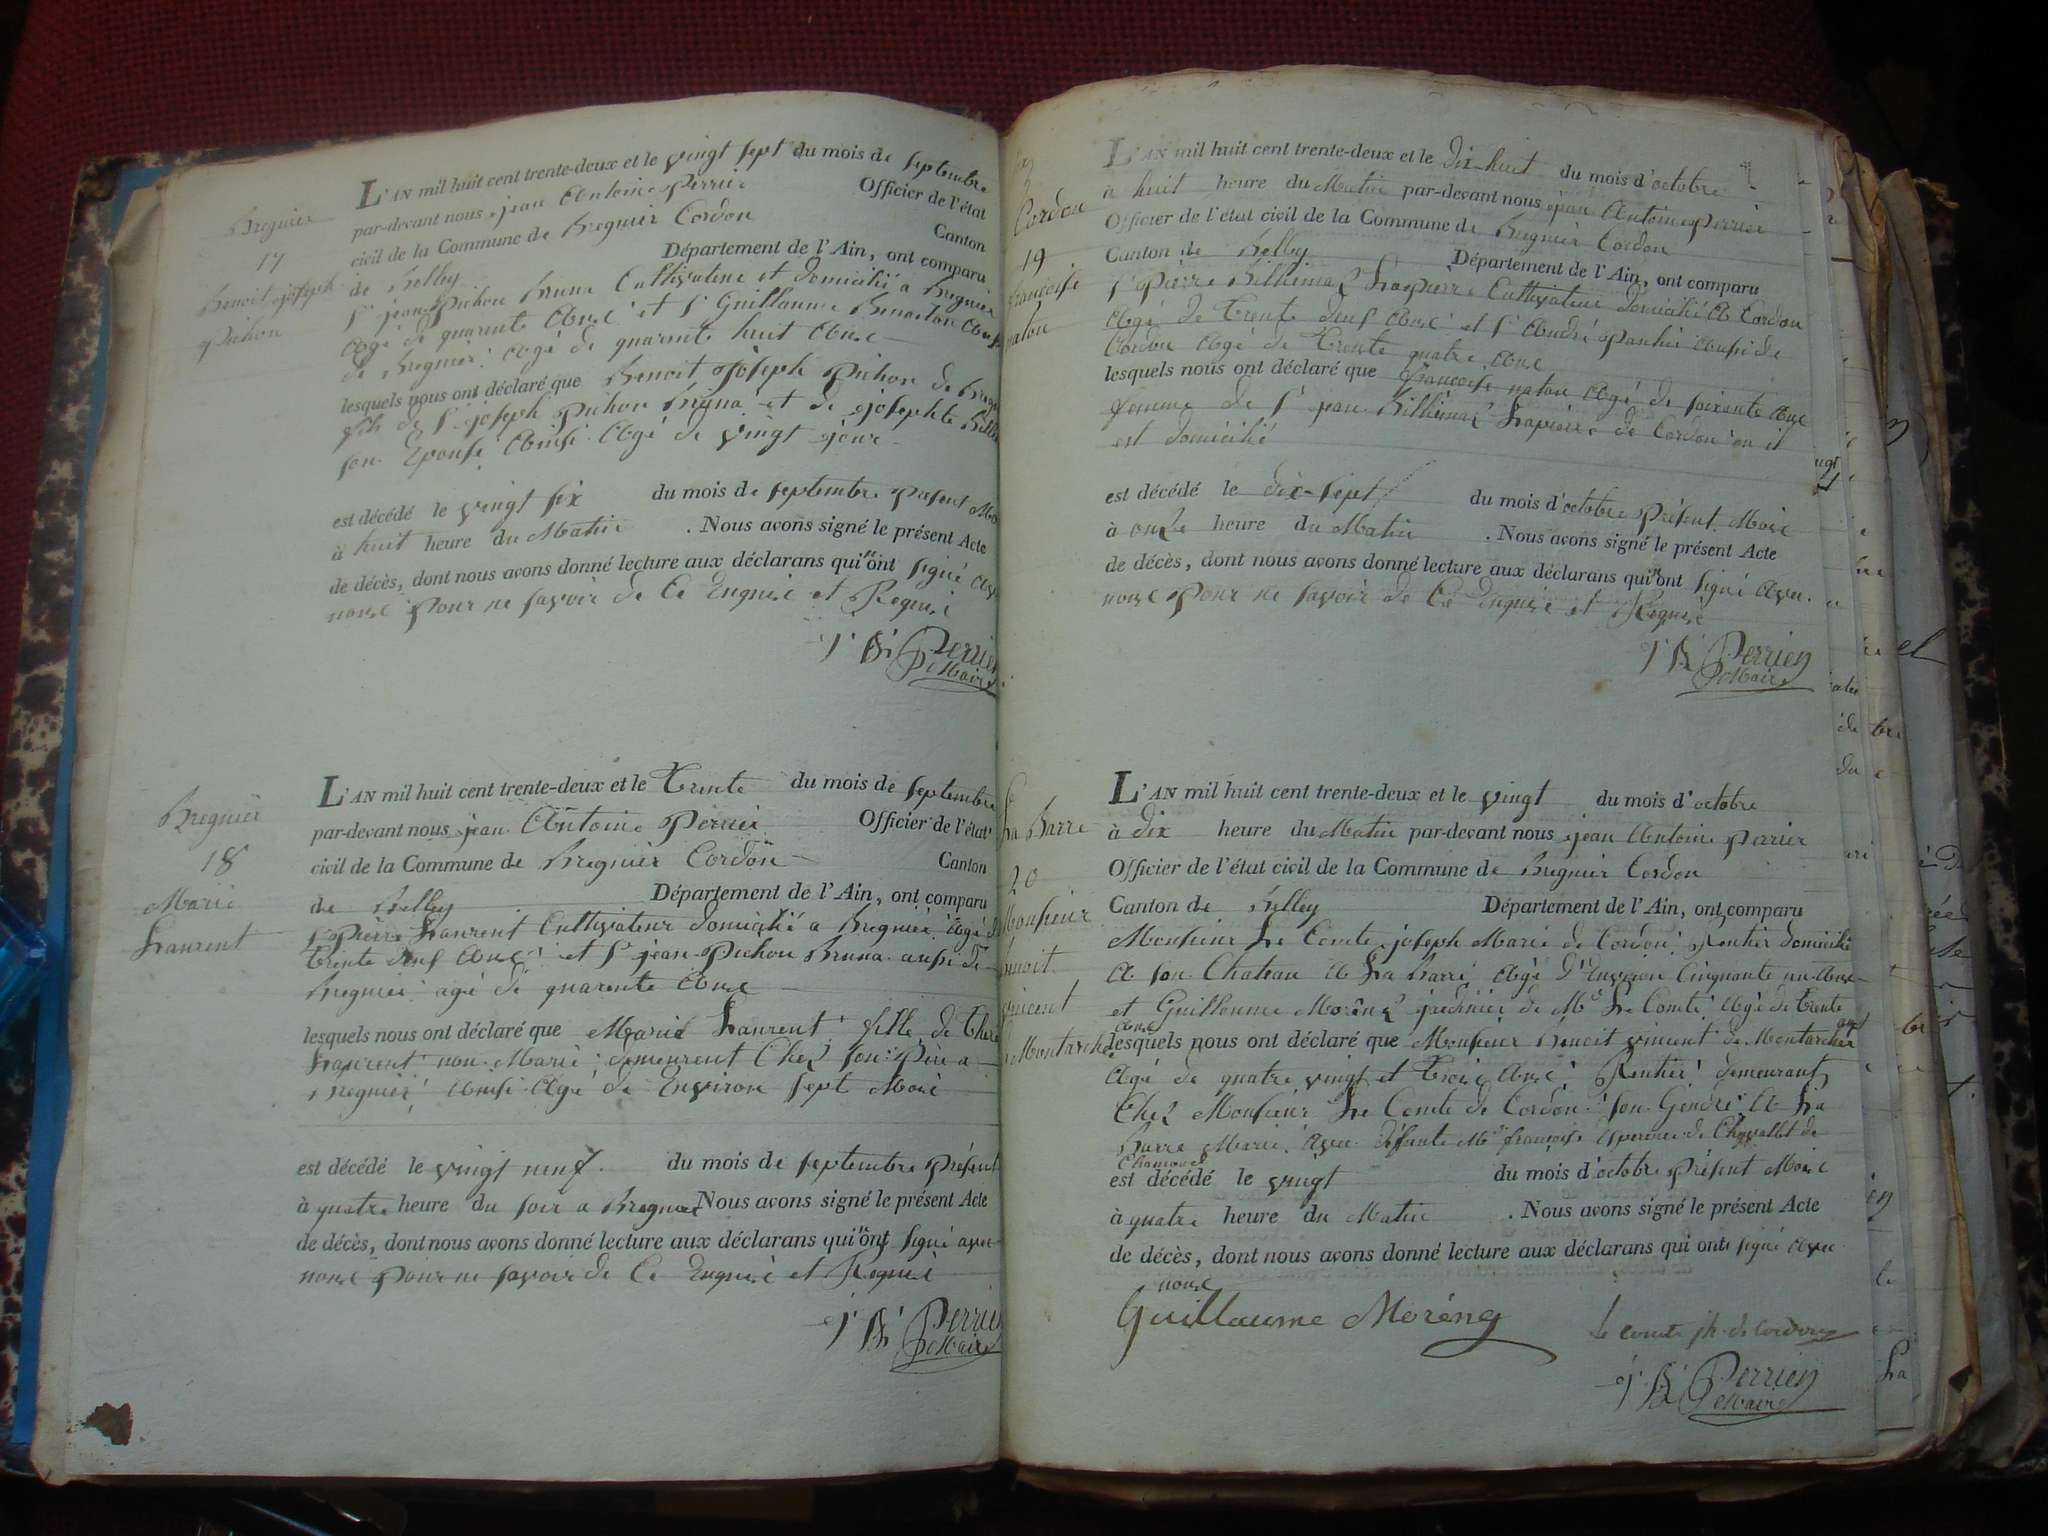 Bregnier
17
Benoit joseph
pichon
L'AN mil huit cent trente-deux et le vingt sept du mois de septembre
par-devant nous jean Antoine Perrier Officier de l'état
civil de la Commune de Bregnier Cordon Canton
de Belley Département de l'Ain, ont comparu
Sr jean Pichon Bruna Cultivateur et domicilié a Bregnier
Agé de quarente Ans et Sr Guillaume
de Bregnier Agé de quarente huit Ans
lesquels nous ont déclaré que Benoit Joseph Pichon de
fils de Sr joseph Pichon Bruna et de josephte
son Epouse Aussi Agé de vingt jour
est décédé le vingt six du mois de septembre présent
à huit heure du Matin . Nous avons signé le présent Acte
de décès, dont nous avons donné lecture aux déclarans qui n'ont signé
nous pour ne savoir de Ce Enquis et Requis
J. A. Perrier
Maire
Bregnier
18
Marie
Laurent
L'AN mil huit cent trente-deux et le Trente du mois de septembre
par-devant nous jean Antoine Perrier Officier de l'état
civil de la Commune de Bregnier Cordon Canton
de Belley Département de l'Ain, ont comparu
Sr Pierre Laurent Cultivateur domicilié a Bregnier Agé de
trente deuf Ans et Sr jean Pichon Bruna aussi de
Bregnier agé de quarente Ans
lesquels nous ont déclaré que Marie Laurent fille de
Laurent non Marié demeurent Chez son Père a
Bregnier Aussi Agé de Environ sept Mois
est décédé le vingt neuf du mois de septembre présent
à quatre heure du soir a Bregnier Nous avons signé le présent Acte
de décès, dont nous avons donné lecture aux déclarans qui n'ont signé avec
nous pour ne savoir de Ce Enquis et Requis
J. A. Perrier
Maire
Cordon
19
francoise
naton
L'AN mil huit cent trente-deux et le dix-huit du mois d'octobre
à huit heure du Matin par-devant nous jean Antoine Perrier
Officier de l'état civil de la Commune de Bregnier Cordon
Canton de Belley Département de l'Ain, ont comparu
Sr Pierre Billiemaz Lapierre Cultivateur domicilié A Cordon
Agé de Trente deuf Ans et Sr André Aussi de
Cordon Agé de Trente quatre Ans
lesquels nous ont déclaré que francoise naton Agé de soixante Ans
femme de Sr jean Billiemaz Lapierre de Cordon ou il
est domicilié
est décédé le dix-sept du mois d'octobre présent Mois
à onze heure du Matin . Nous avons signé le présent Acte
de décès, dont nous avons donné lecture aux déclarans qui n'ont signé avec
nous pour ne savoir de Ce Enquis et Requis
J. A. Perrier
Maire
La Barre
20
Monsieur
Benoit
vincent
Montarcher
L'AN mil huit cent trente-deux et le vingt du mois d'octobre
à dix heure du Matin par-devant nous jean Antoine Perrier
Officier de l'état civil de la Commune de Bregnier Cordon
Canton de Belley Département de l'Ain, ont comparu
Monsieur Le Comte joseph Marie de Cordon Rentier domicilié
A son Chateau A La Barre Agé d'Environ Cinquante un Ans
et Guillaume Moréng jardinier de Mr Le Comte Agé de trente
Ans
lesquels nous ont déclaré que Monsieur Benoit vincent de Montarcher
Agé de quatre vingt et Trois Ans Rentier demeurant
Chez Monsieur Le Comte de Cordon son Gendre A La
Barre Marié avec défunte Me françoise de Chevallet de
est décédé le vingt du mois d'octobre présent Mois
à quatre heure du Matin . Nous avons signé le présent Acte
de décès, dont nous avons donné lecture aux déclarans qui ont signé avec
nous
Guillaume Moréng
Le comte jh. de Cordon
J. A. Perrier
Maire